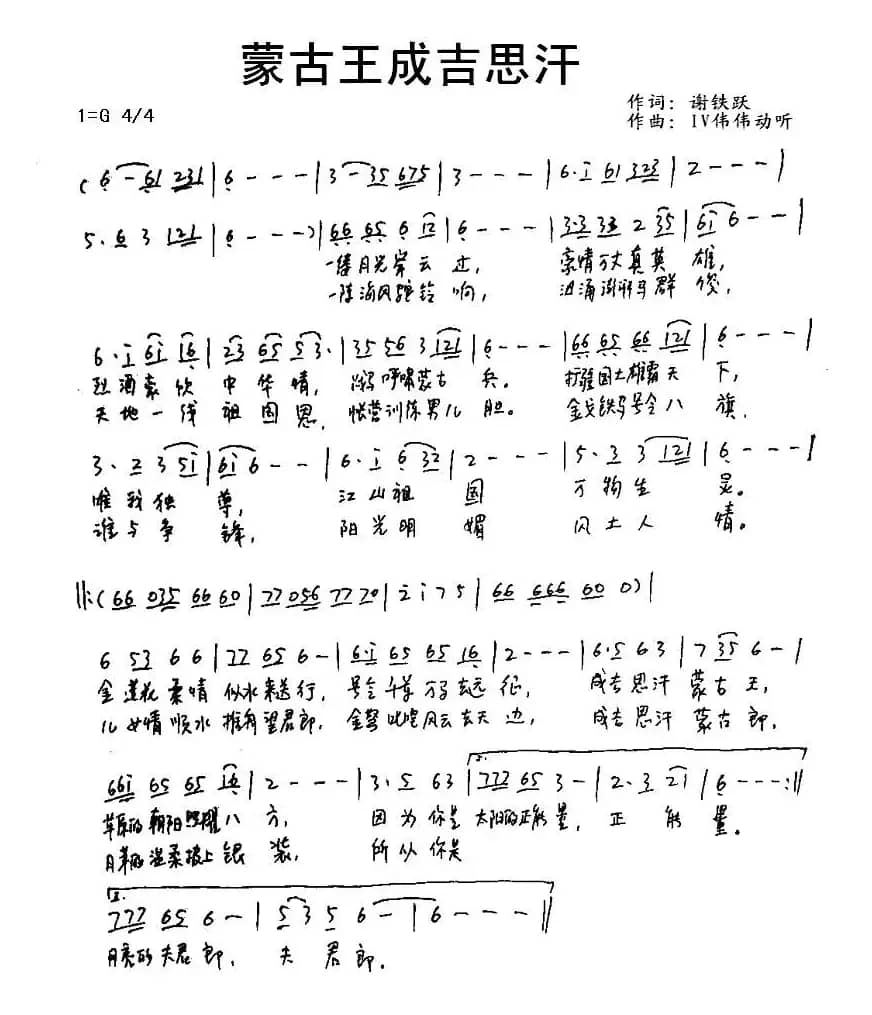 蒙古王成吉思汗
1=G 4/4
作词：谢铁跃
作曲：IV伟伟动听
(6 - 61 231 | 6 - - - | 3 - 35 675 | 3 - - - | 6·i 61 323 | 2 - - - |
5·6 3 121 | 6 - - -) | 66 65 6 12 | 6 - - - | 3·3 33 2 35 | 6i 6 - - |
月光 云 过， 豪情万丈真英 雄，
一阵海风 铃 响， 汹涌澎湃马群
6·i 6i 16 | 23 65 53· | 35 56 3 121 | 6 - - - | 66 65 66 121 | 6 - - - |
烈酒豪饮 中华情， 呼啸蒙古 兵。 打疆国土雄霸天 下，
天地一线 祖国恩， 帐营训练男儿 胆。 金戈铁马号令八 旗，
3·2 3 5i | 6i 6 - - | 6·i 6 32 | 2 - - - | 5·3 3 121 | 6 - - - |
唯我独 尊， 江山祖 国 万物生 灵。
谁与争 锋， 阳光明 媚 风土人 情。
||:(66 035 66 60 | 77 056 77 70 | 2 i 7 5 | 66 666 60 0) |
6 53 6 6 | 77 65 6 - | 6·i 65 65 16 | 2 - - - | 6·5 6 3 | 7 35 6 - |
金莲花柔情 似水来送行， 号令千 万 去远 征， 成吉思汗 蒙古王，
儿女情顺水 推舟望君郎， 金 叱咤风云去天 边， 成吉思汗 蒙古郎，
66i 65 65 16 | 2 - - - | 3·5 63 | 777 65 3 - | 2·3 2i | 6 - - - :||
草原的朝阳照耀八 方， 因为你是 太阳的正能量， 正 能 量。
月 的温柔披上银 装， 所以你是
777 65 6 - | 5 3 5 6 - | 6 - - - ||
月亮的夫君郎， 夫 君 郎。